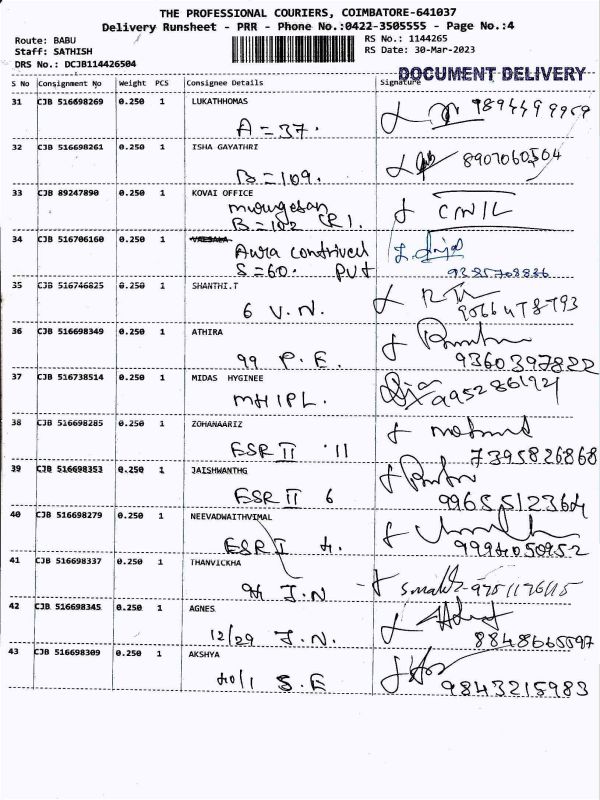 THE PROFESSIONAL COURIERS, COIMBATORE-641037
Delivery Runsheet - PRR - Phone No.:0422-3505555 - Page No.:4
Route: BABU
RS No.: 1144265
Staff: SATHISH
RS Date: 30-Mar-2023
DRS No.: DCJB114426504
DOCUMENT DELIVERY
S No Consignment No Weight PCS Consignee Details Signature
31 CJB 516698269 0.250 1 LUKATHHOMAS
A = 37. 9894499969
32 CJB 516698261 0.250 1 ISHA GAYATHRI
B = 109. 8907060504
33 CJB 89247890 0.250 1 KOVAI OFFICE
murugesan
B = 102 (R).
34 CJB 516706160 0.250 1
Aura contrived
S = 60. Pvt 9385708836
35 CJB 516746825 0.250 1 SHANTHI.T
6 V.N.
36 CJB 516698349 0.250 1 ATHIRA
99 P.E. 9360397822
37 CJB 516738514 0.250 1 MIDAS HYGINEE
MHIPL.
38 CJB 516698285 0.250 1 ZOHANAARIZ
ESR II 11 7395826868
39 CJB 516698353 0.250 1 JAISHWANTHG
ESR II 6 9965512364
40 CJB 516698279 0.250 1 NEEVADWAITHVIMAL
ESR I 4. 9994050952
41 CJB 516698337 0.250 1 THANVICKHA
J.N
42 CJB 516698345 0.250 1 AGNES
12/29 J.N. 8848665597
43 CJB 516698309 0.250 1 AKSHYA
40/1 S.E 9843215983